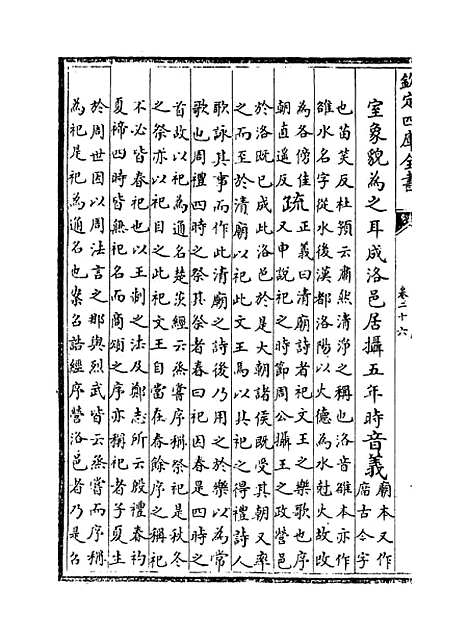 欽定四庫全書
卷二十六
室象貌為之耳成洛邑居攝五年時音義廟本又作
庿古今字
也苗笑反杜預云肅然清淨之稱也洛音雒本亦作
雒水名字從水後漢都洛陽以火德為水尅火故改
為各傍隹
朝直遥反
疏
正義曰清廟詩者祀文王之樂歌也序
又申說祀之時節周公攝王之政營邑
於洛既已成此洛邑於是大朝諸侯既受其朝又率
之而至於清廟以祀此文王焉以其祀之得禮詩人
歌詠其事而作此清廟之詩後乃用之於樂以為常
歌也周禮四時之祭其祭者春曰祀因春是四時之
首故以祀為通名楚茨經云烝嘗序稱祭祀是秋冬
之祭亦以祀目之此祀文王自當在春餘序之稱祀
不必皆春祀也以王制之法及鄭志所云殷禮春礿
夏禘四時皆無祀名而商頌之序亦稱祀者子夏生
於周世因以周法言之那與烈武皆云烝嘗而序稱
為祀是祀為通名也案召誥經序營洛邑者乃是召